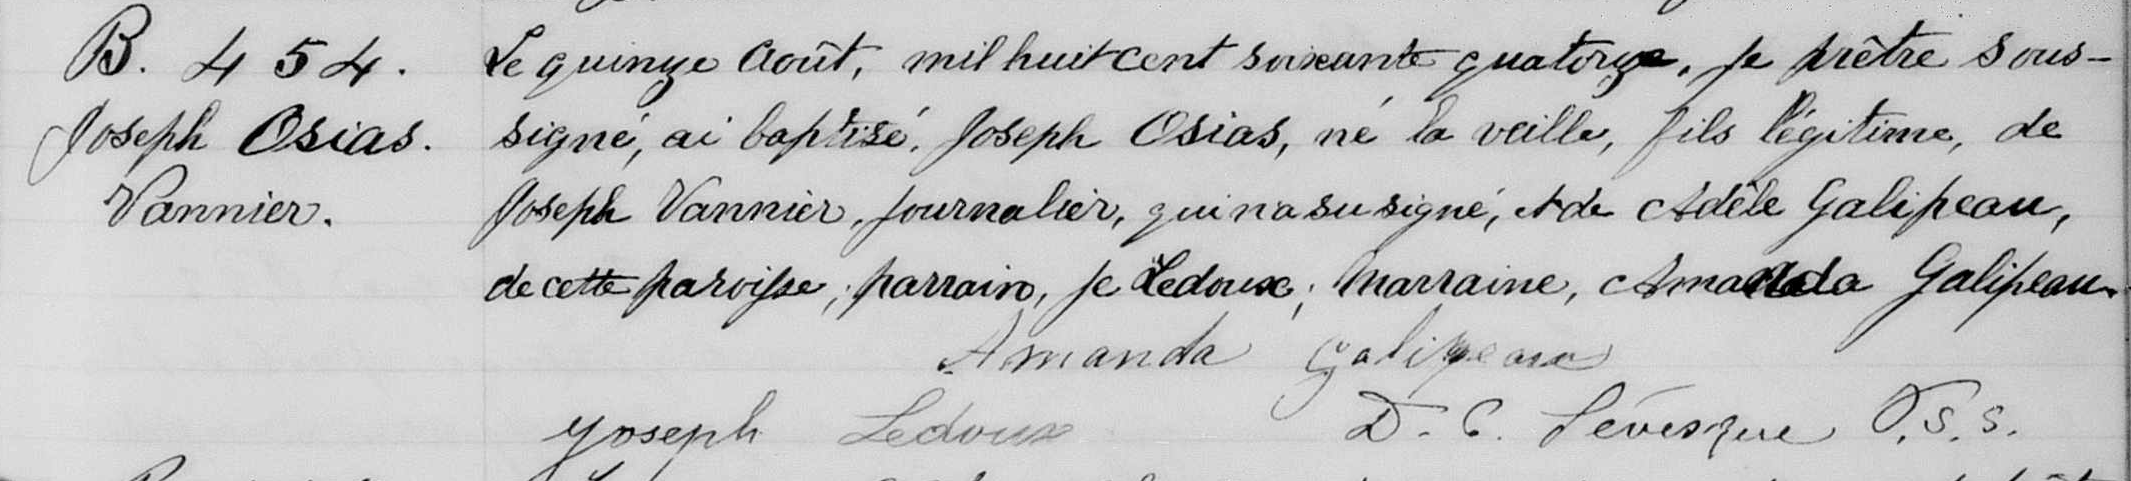 B. 454. Le quinze Août, mil huit cent soixante quatorze, je prêtre sous-
Joseph Osias. signé, ai baptisé, Joseph Osias, né la veille, fils légitime, de
Vannier. Joseph Vannier, journalier, qui n'a su signé, et de Adèle Galipeau,
de cette paroisse; parrain, Je Ledoux; marraine, Amanda Galipeau.
Amanda Galipeau
Joseph Ledoux D. C. Lévesque P.S.S.